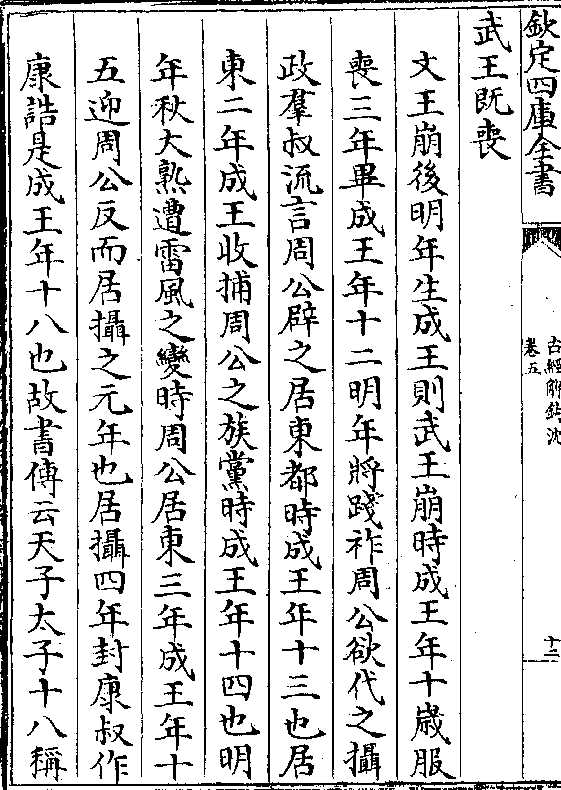 欽定四庫全書
古經解鉤沈
卷五
十二
武王既喪
文王崩後明年生成王則武王崩時成王年十歲服
喪三年畢成王年十二明年將踐祚周公欲代之攝
政羣叔流言周公辟之居東都時成王年十三也居
東二年成王收捕周公之族黨時成王年十四也明
年秋大熟遭雷風之變時周公居東三年成王年十
五迎周公反而居攝之元年也居攝四年封康叔作
康誥是成王年十八也故書傳云天子太子十八稱